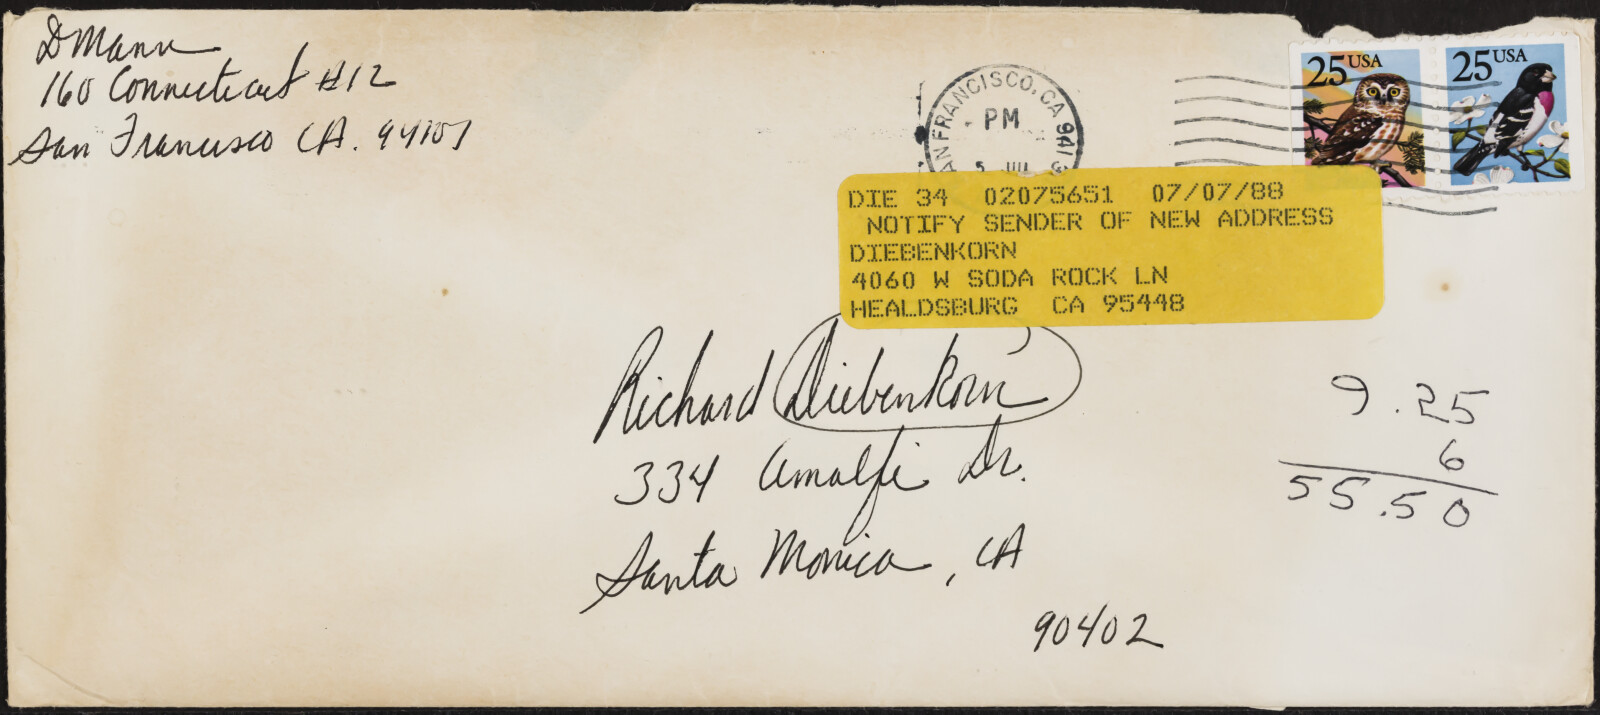 D Mann
160 Connecticut #12
San Francisco CA. 94107
SAN FRANCISCO, CA 941
PM
5 JUL
25 USA
25 USA
DIE 34 02075651 07/07/88
NOTIFY SENDER OF NEW ADDRESS
DIEBENKORN
4060 W SODA ROCK LN
HEALDSBURG CA 95448
Richard Diebenkorn
334 Amalfi Dr.
Santa Monica, CA
90402
9.25
6
55.50